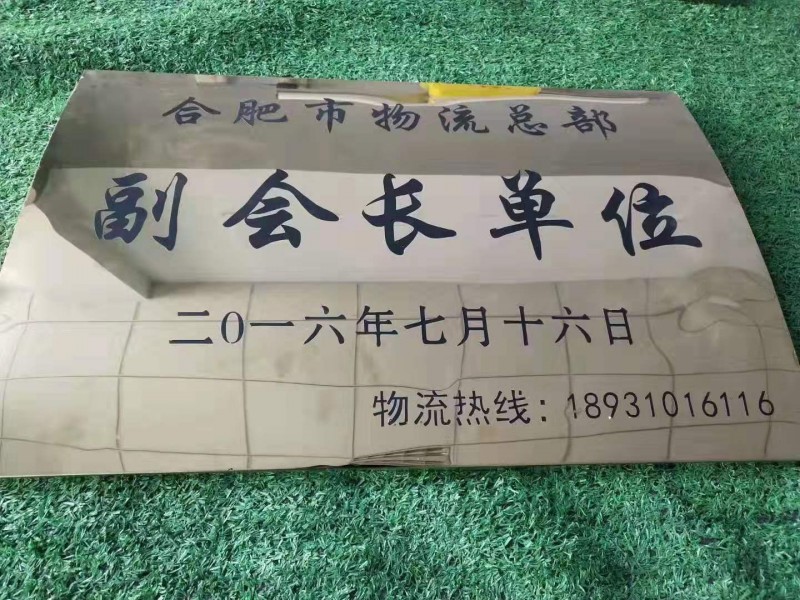 合肥市物流总部
副会长单位
二0一六年七月十六日
物流热线：18931016116